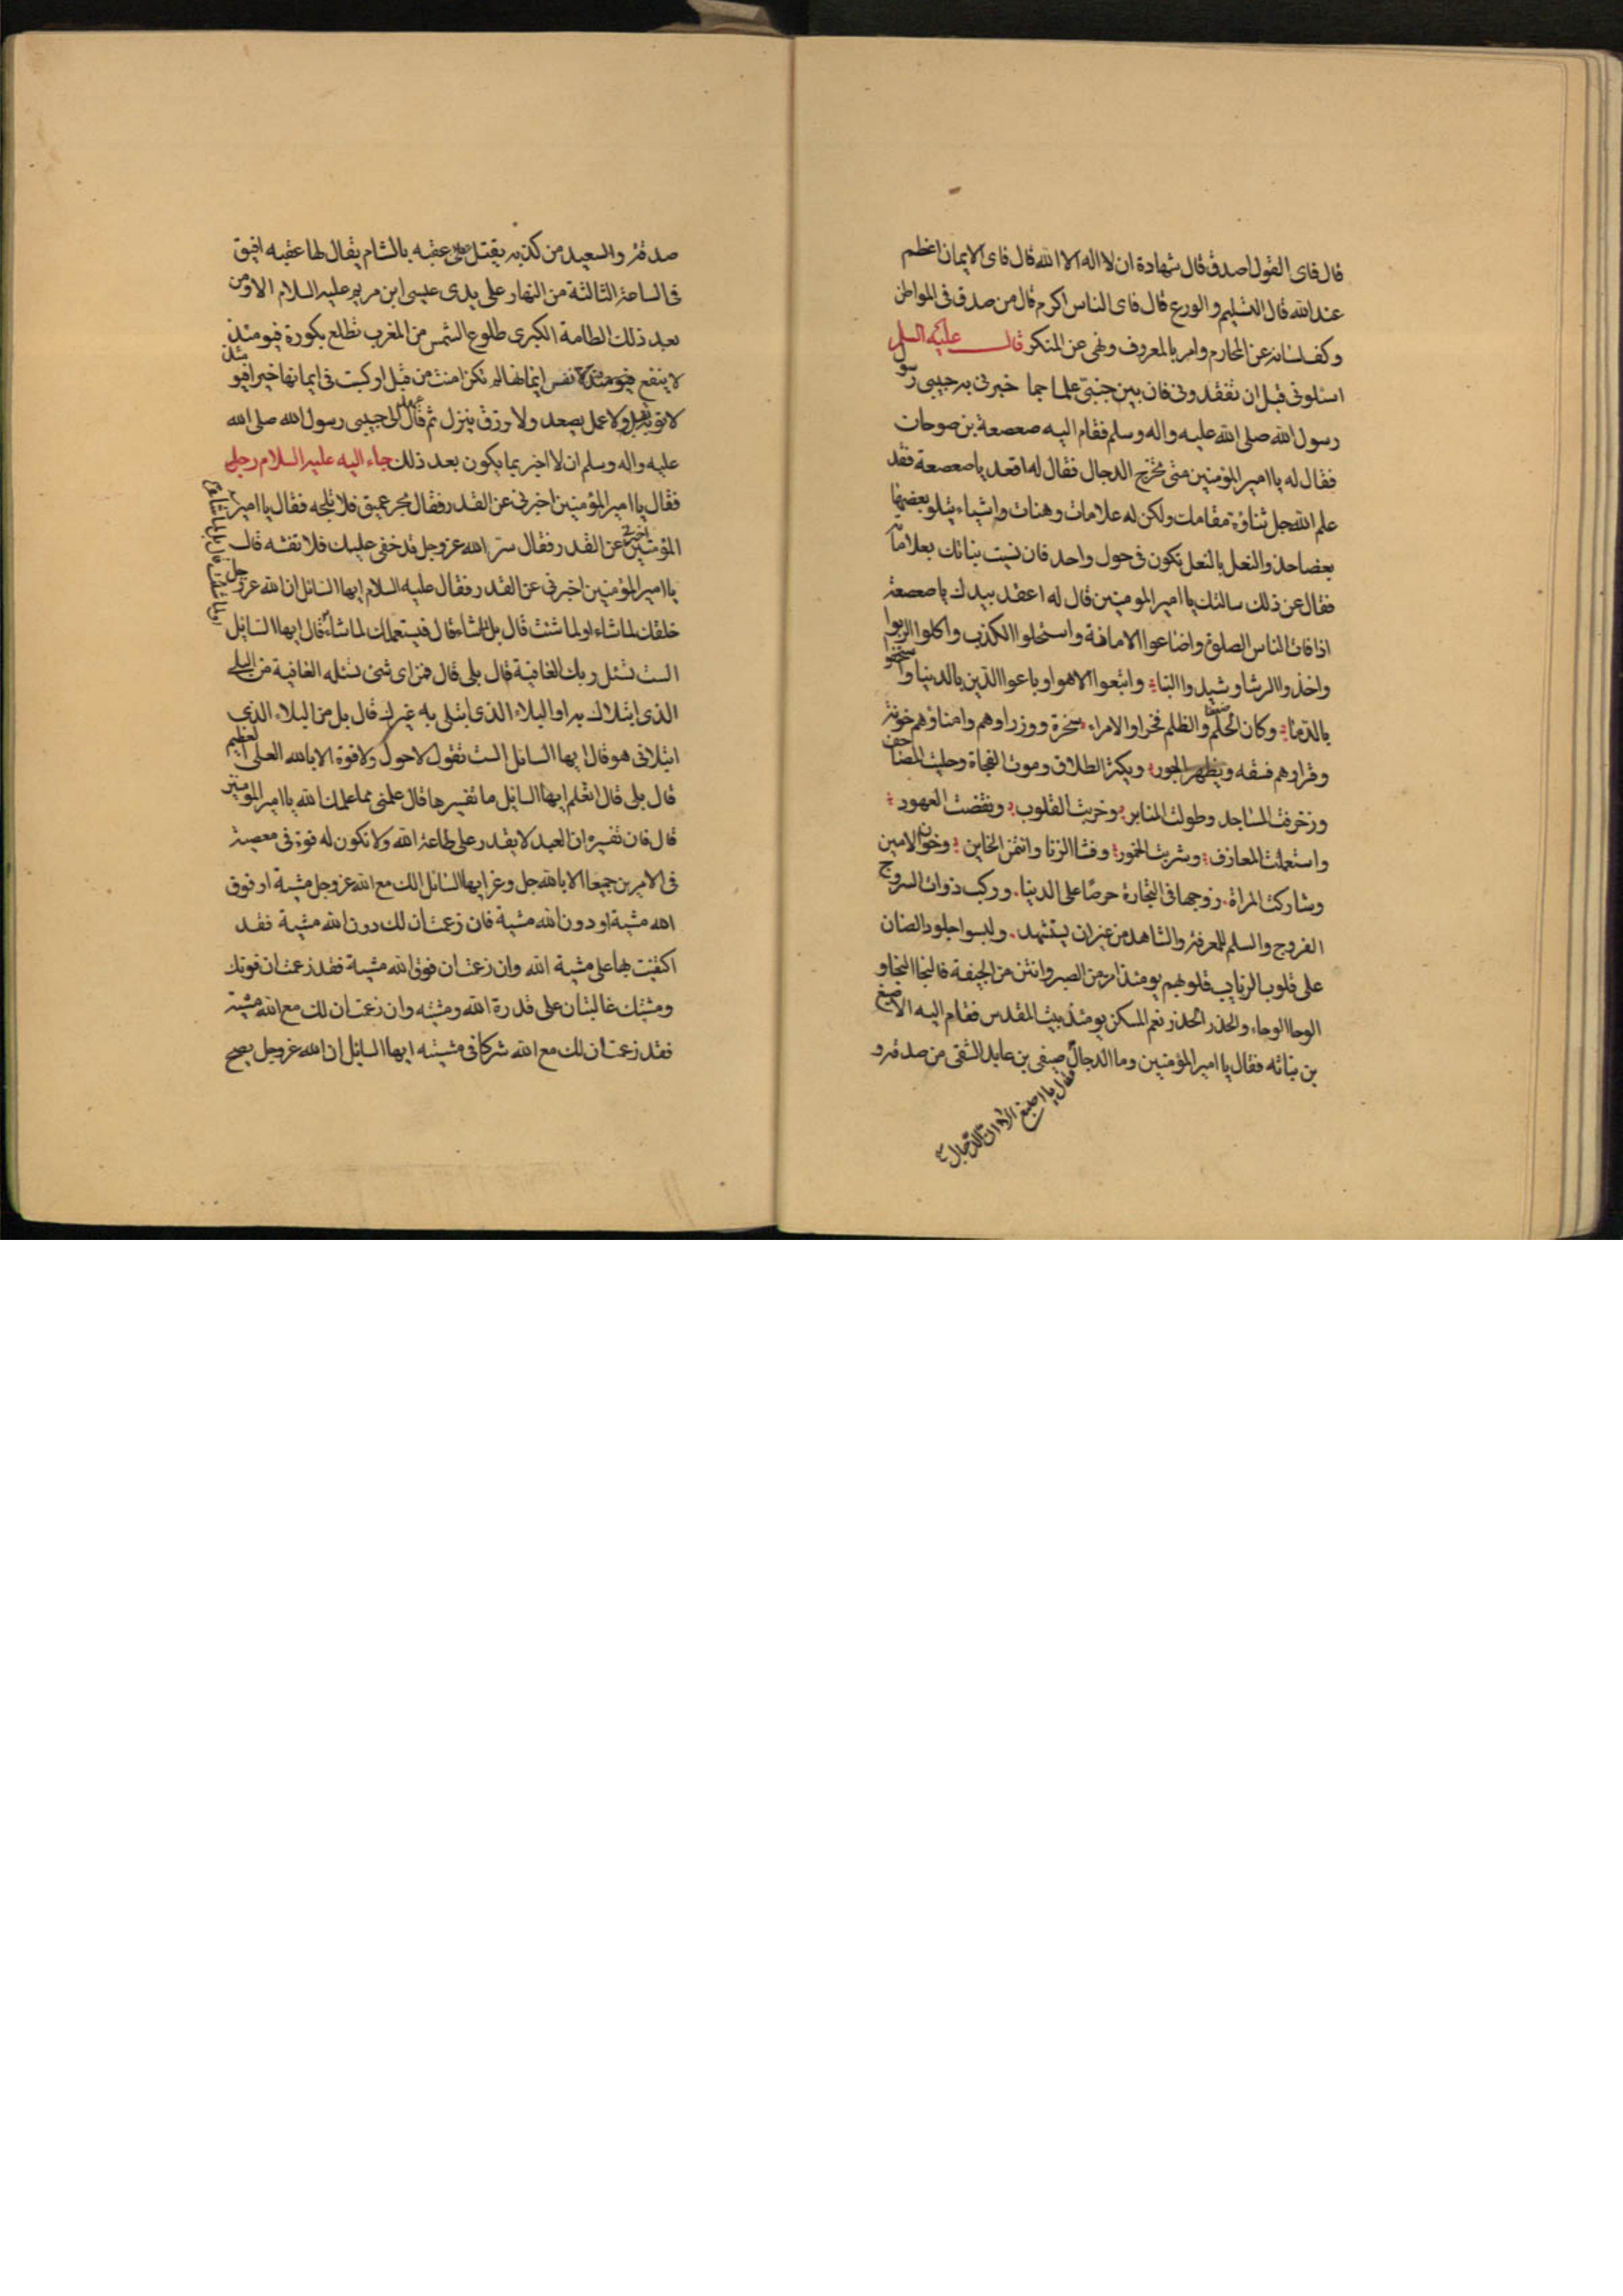 قال فاى القول اصدق قال شهادة ان لا اله الا الله قال فاى الايمان اعظم
عند الله قال التسليم والورع قال فاى الناس اكرم قال من صدق فى المواطن
وكف لسانه عن المحارم وامر بالمعروف ونهى عن المنكر قال عليه السلم
اسئلونى قبل ان تفقدونى فان بين جنبتى علما جما خبرنى به حبيبى رسول
رسول الله صلى الله عليه واله وسلم فقام اليه صعصعة بن صوحات
فقال له يا امير المؤمنين متى مخرج الدجال فقال له اقعد يا صعصعة فقد
علم الله جل ثناؤه مقامك ولكن له علامات وهنات واشياء يتلو بعضها
بعضا حذو النعل بالنعل تكون فى حول واحد فان شئت بناتك بعلاماته
فقال عن ذلك سالتك يا امير المومنين قال له اعقد بيدك يا صعصعة
اذا فات الناس الصلوة واضاعوا الامانة واستحلوا الكذب واكلوا الربوا
واخذوا الرشا وشيدوا البناء واتبعوا الاهوا وباعوا الدين بالدنيا واستخفو
بالدماء وكان الحلم ضعفا والظلم فخرا والامراء سخرة ووزراوهم وامناؤهم خونة
وقراوهم فسقه ويظهر الجور ويكثر الطلاق وموت الفجاة وحليت المصاحف
وزخرفت المساجد وطولت المنابر وخربت القلوب ونقضت العهود
واستعملت المعازف وشربت الخمور وفشا الزنا وائتمن الخاين وخون الامين
وشاركت المراة زوجها فى التجارة حرصا على الدنيا وركب ذوات السروج
الفروج والسلم للمعرفة والشاهد من غير ان يستشهد ولبسوا جلود الضان
على قلوب الزياب قلوبهم يومئذ امر من الصبر وانتن من الجيفة فالنجا النجا و
الوحا الوحاء والحذر الحذر نعم المسكن يومئذ بيت المقدس فقام اليه الاصبغ
بن نباته فقال يا امير المؤمنين وما الدجال صيفى بن عايد الشقى من صدقه و
فقال يا اصبغ الا ان الدجال
صدقه والسعيد من كذبه يقتل على عقبه بالشام يقال لها عقبه افيق
فى الساعة الثالثة من النهار على يدى عيسى ابن مريم عليه السلام الا ومن
بعد ذلك الطامة الكبرى طلوع الشمس من المغرب تطلع بكورة فيومئذ
لا ينفع نفس ايمانها لم تكن امنت من قبل او كسبت فى ايمانها خيرا فيومئذ
لا توبة تقبل ولا عمل يصعد ولا رزق ينزل ثم قال عهد الى حبيبى رسول الله صلى الله
عليه واله وسلم ان لا اخبر بما يكون بعد ذلك جاء اليه عليه السلام رجلى
فقال يا امير المؤمنين اخبرنى عن القدر فقال بحر عميق فلا تلجه فقال يا امير
المؤمنين اخبرنى عن القدر فقال سر الله عزوجل قد خفى عليك فلا تفشه قال
يا امير المؤمنين اخبرنى عن القدر فقال عليه السلام ايها السائل ان الله عزوجل
خلقك لما شاء او لما شئت قال بل لما شاء قال فيستعملك لما شاء قال ايها السائل
الست تسئل ربك العافية قال بلى قال فمن اى شئ تسئله العافية من البلاء
الذى ابتلاك به او البلاء الذى ابتلى به غيرك قال بل من البلاء الذى
ابتلانى هو قال ايها السائل الست تقول لا حول ولا قوة الا بالله العلى العظيم
قال بلى قال اتعلم ايها السايل ما تفسيرها قال علمنى مما علمك الله يا امير المومنين
قال فان تفسيره ان العبد لا يقدر على طاعة الله ولا تكون له قوة فى معصية
فى الامرين جميعا الا بالله جل وعز ايها السائل الك مع الله عزوجل مشية او فوق
الله مشية او دون الله مشية فان زعمت ان لك دون الله مشية فقد
اكتفيت بها على مشية الله وان زعمت ان فوق الله مشية فقد زعمت ان قوتك
ومشيتك غالبتان على قدرة الله ومشيته وان زعمت ان لك مع الله مشية
فقد زعمت ان لك مع الله شركا فى مشيته ايها السايل ان الله عزوجل يصح